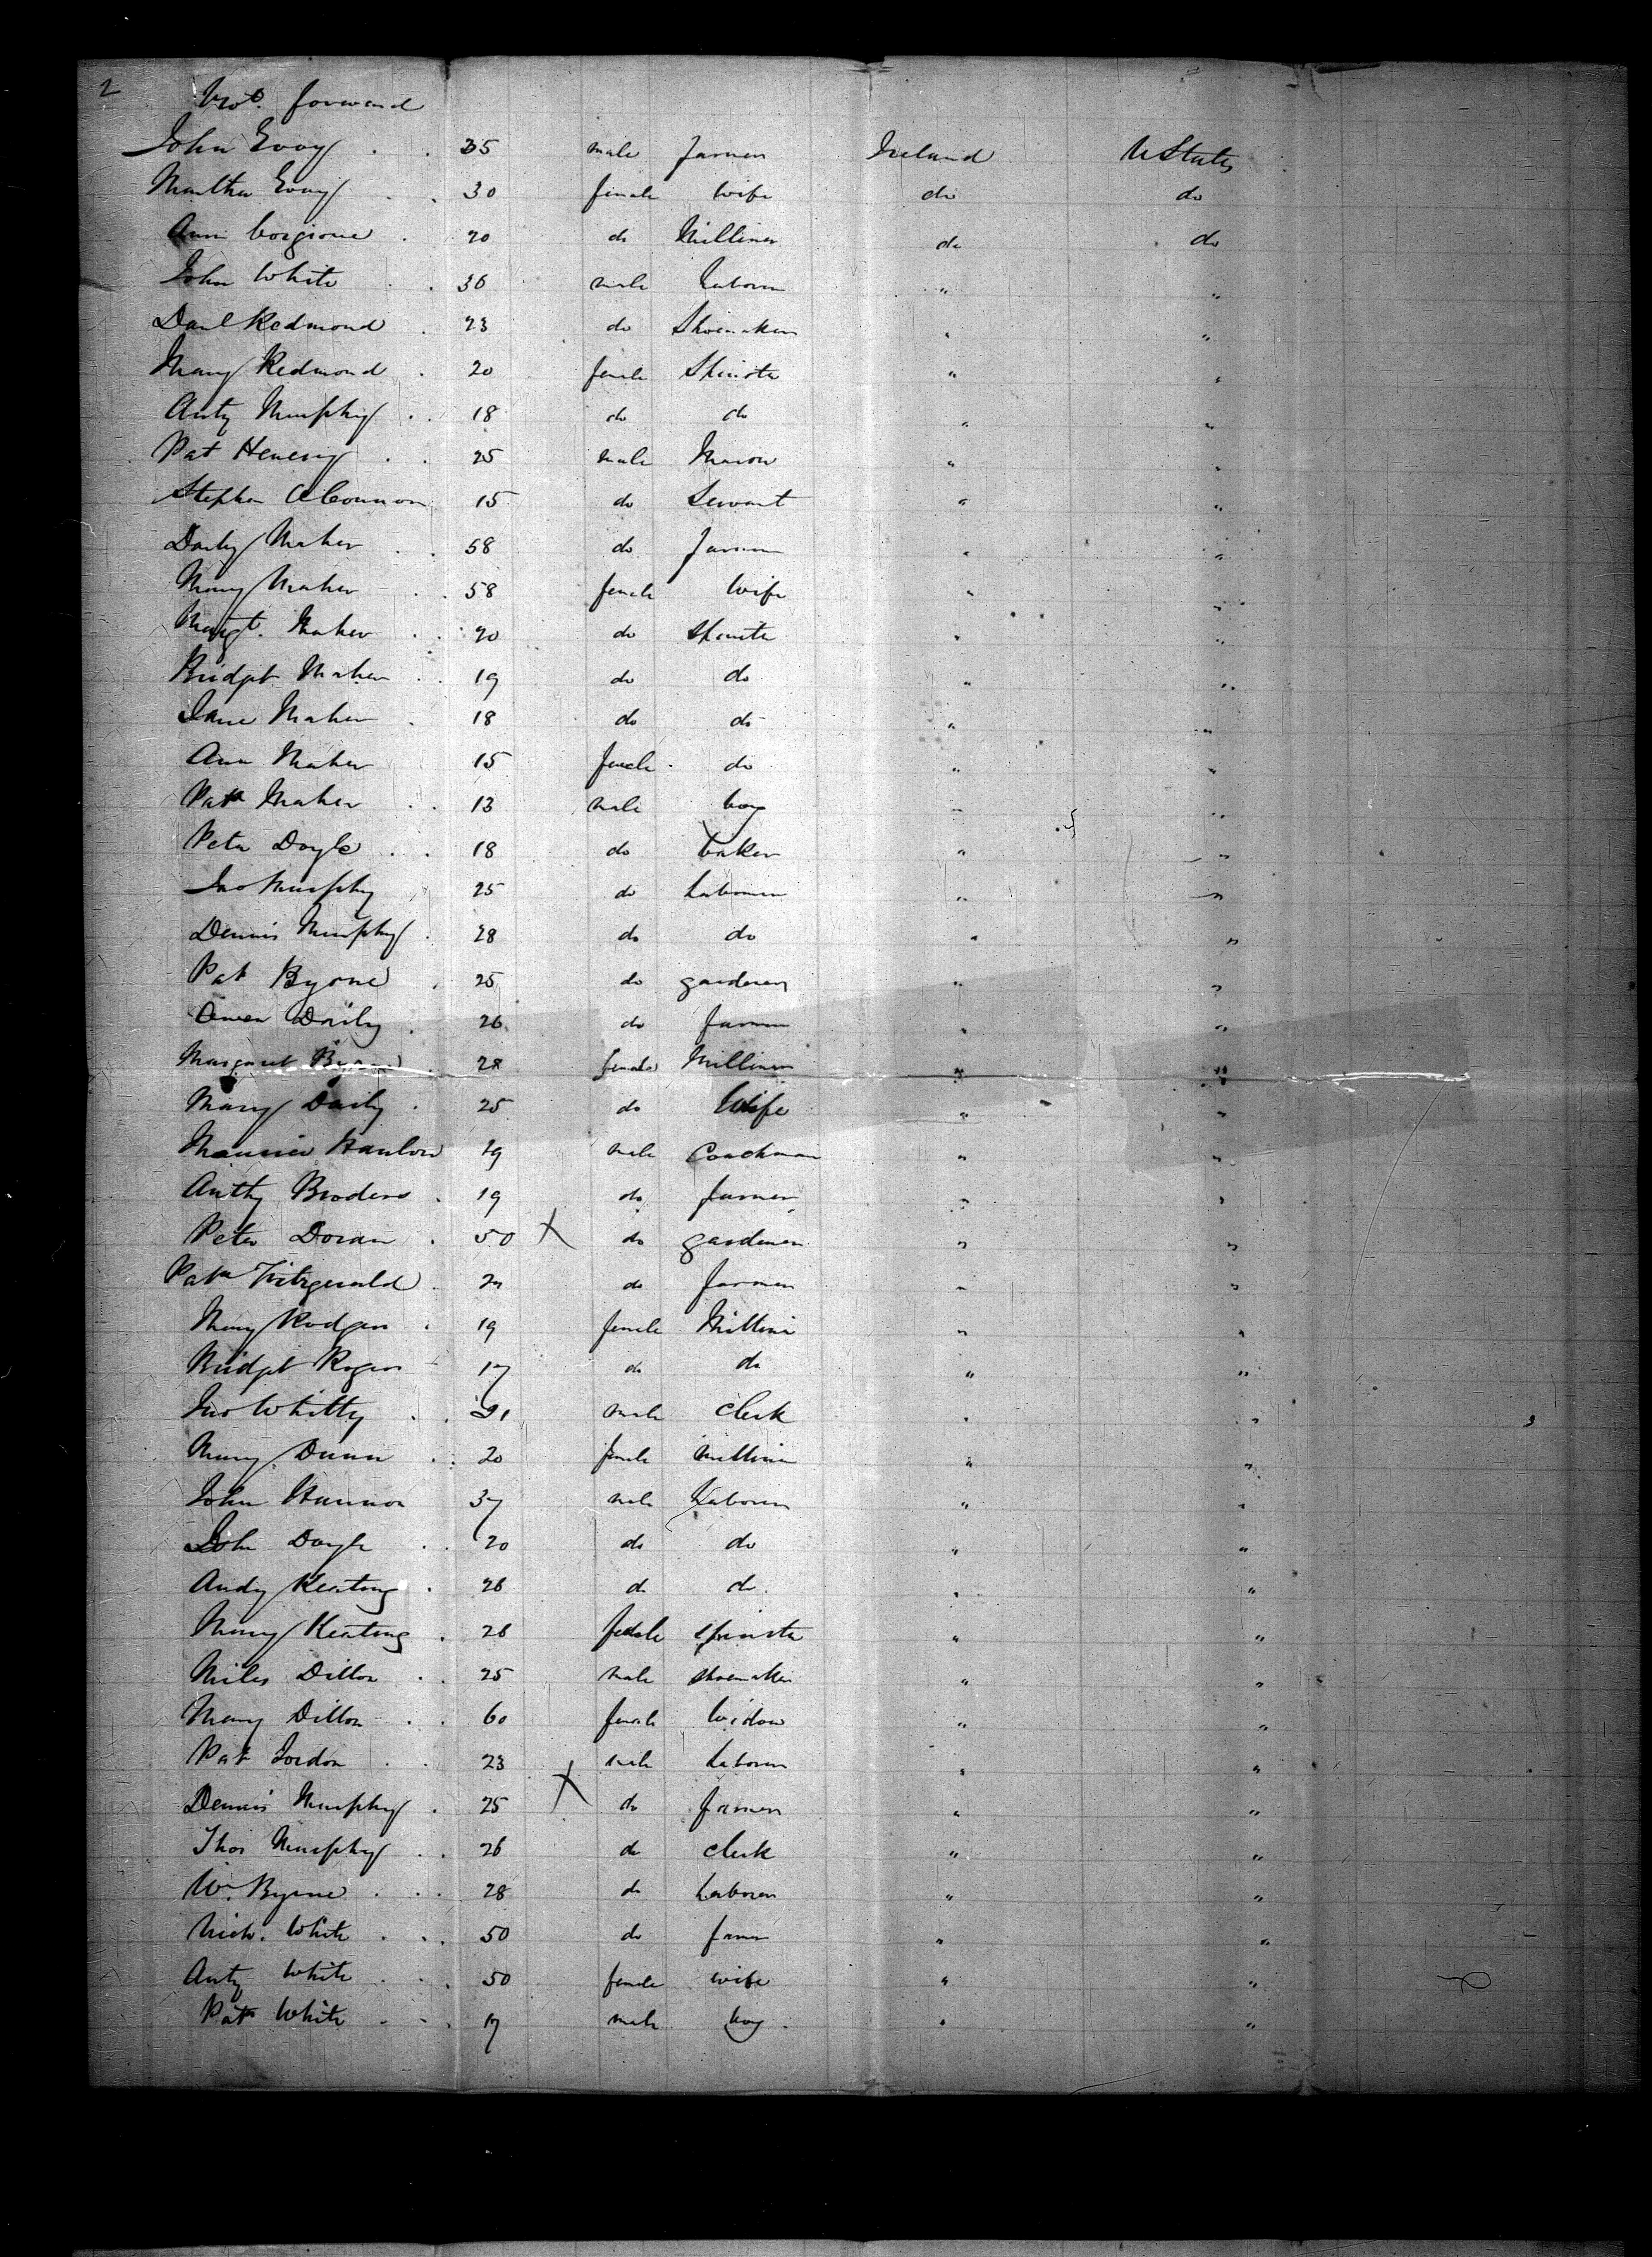 2
Brot. forward
John Evoy . . 35 male farmer Ireland U States
Martha Evoy . . 30 female wife do do
Ann . 20 do Milliner do do
John White . . 36 male Laborer " "
Danl Redmond . 23 do Shoemaker " "
Mary Redmond . 20 female Spinster " "
Anty Murphy . . 18 do do " "
Pat Henesy . . 25 male Mason " "
Stephen OConnor 15 do Servant " "
Darby Maher . . 58 do farmer " "
Mary Maher . . 58 female wife " "
Margt. Maher . . 20 do Spinster " "
Bridget Maher . . 19 do do " "
Jane Maher . 18 do do " "
Ann Maher 15 female do " "
Patk Maher . . 13 male boy " "
Peter Doyle . . 18 do baker " "
Jno Murphy 25 do Laborer " "
Dennis Murphy . 28 do do " "
Pat Byrne . 25 do gardener " "
Owen Daily . 26 do farmer " "
Margaret Byrne . 28 female Milliner " "
Mary Daily . 25 do Wife " "
Maurice Hanlon 19 male Coachman " "
Anthy Broders . 19 do farmer " "
Peter Doran . 50 X do gardener " "
Patk Fitzgerald . do farmer " "
Mary Rodgers . 19 female Milliner " "
Bridget Rogers 17 do do " "
Jno Whitty . . 21 male Clerk " "
Mary Dunn . . 20 female milliner " "
John Hannon 37 male Laborer " "
John Doyle . . 20 do do " "
Andy Keating . 26 do do " "
Mary Keating . 26 female spinster " "
Miles Dillon . . 25 male shoemaker " "
Mary Dillon . . 60 female widow " "
Pat Jordon . . 23 male Laborer " "
Dennis Murphy . 25 X do farmer " "
Thos Murphy . . 26 do clerk " "
Wm. Byrne . . . 28 do Laborer " "
Nich. White . . . 50 do farmer " "
Anty White . . . 50 female wife " "
Pat White . . . 17 male boy " "